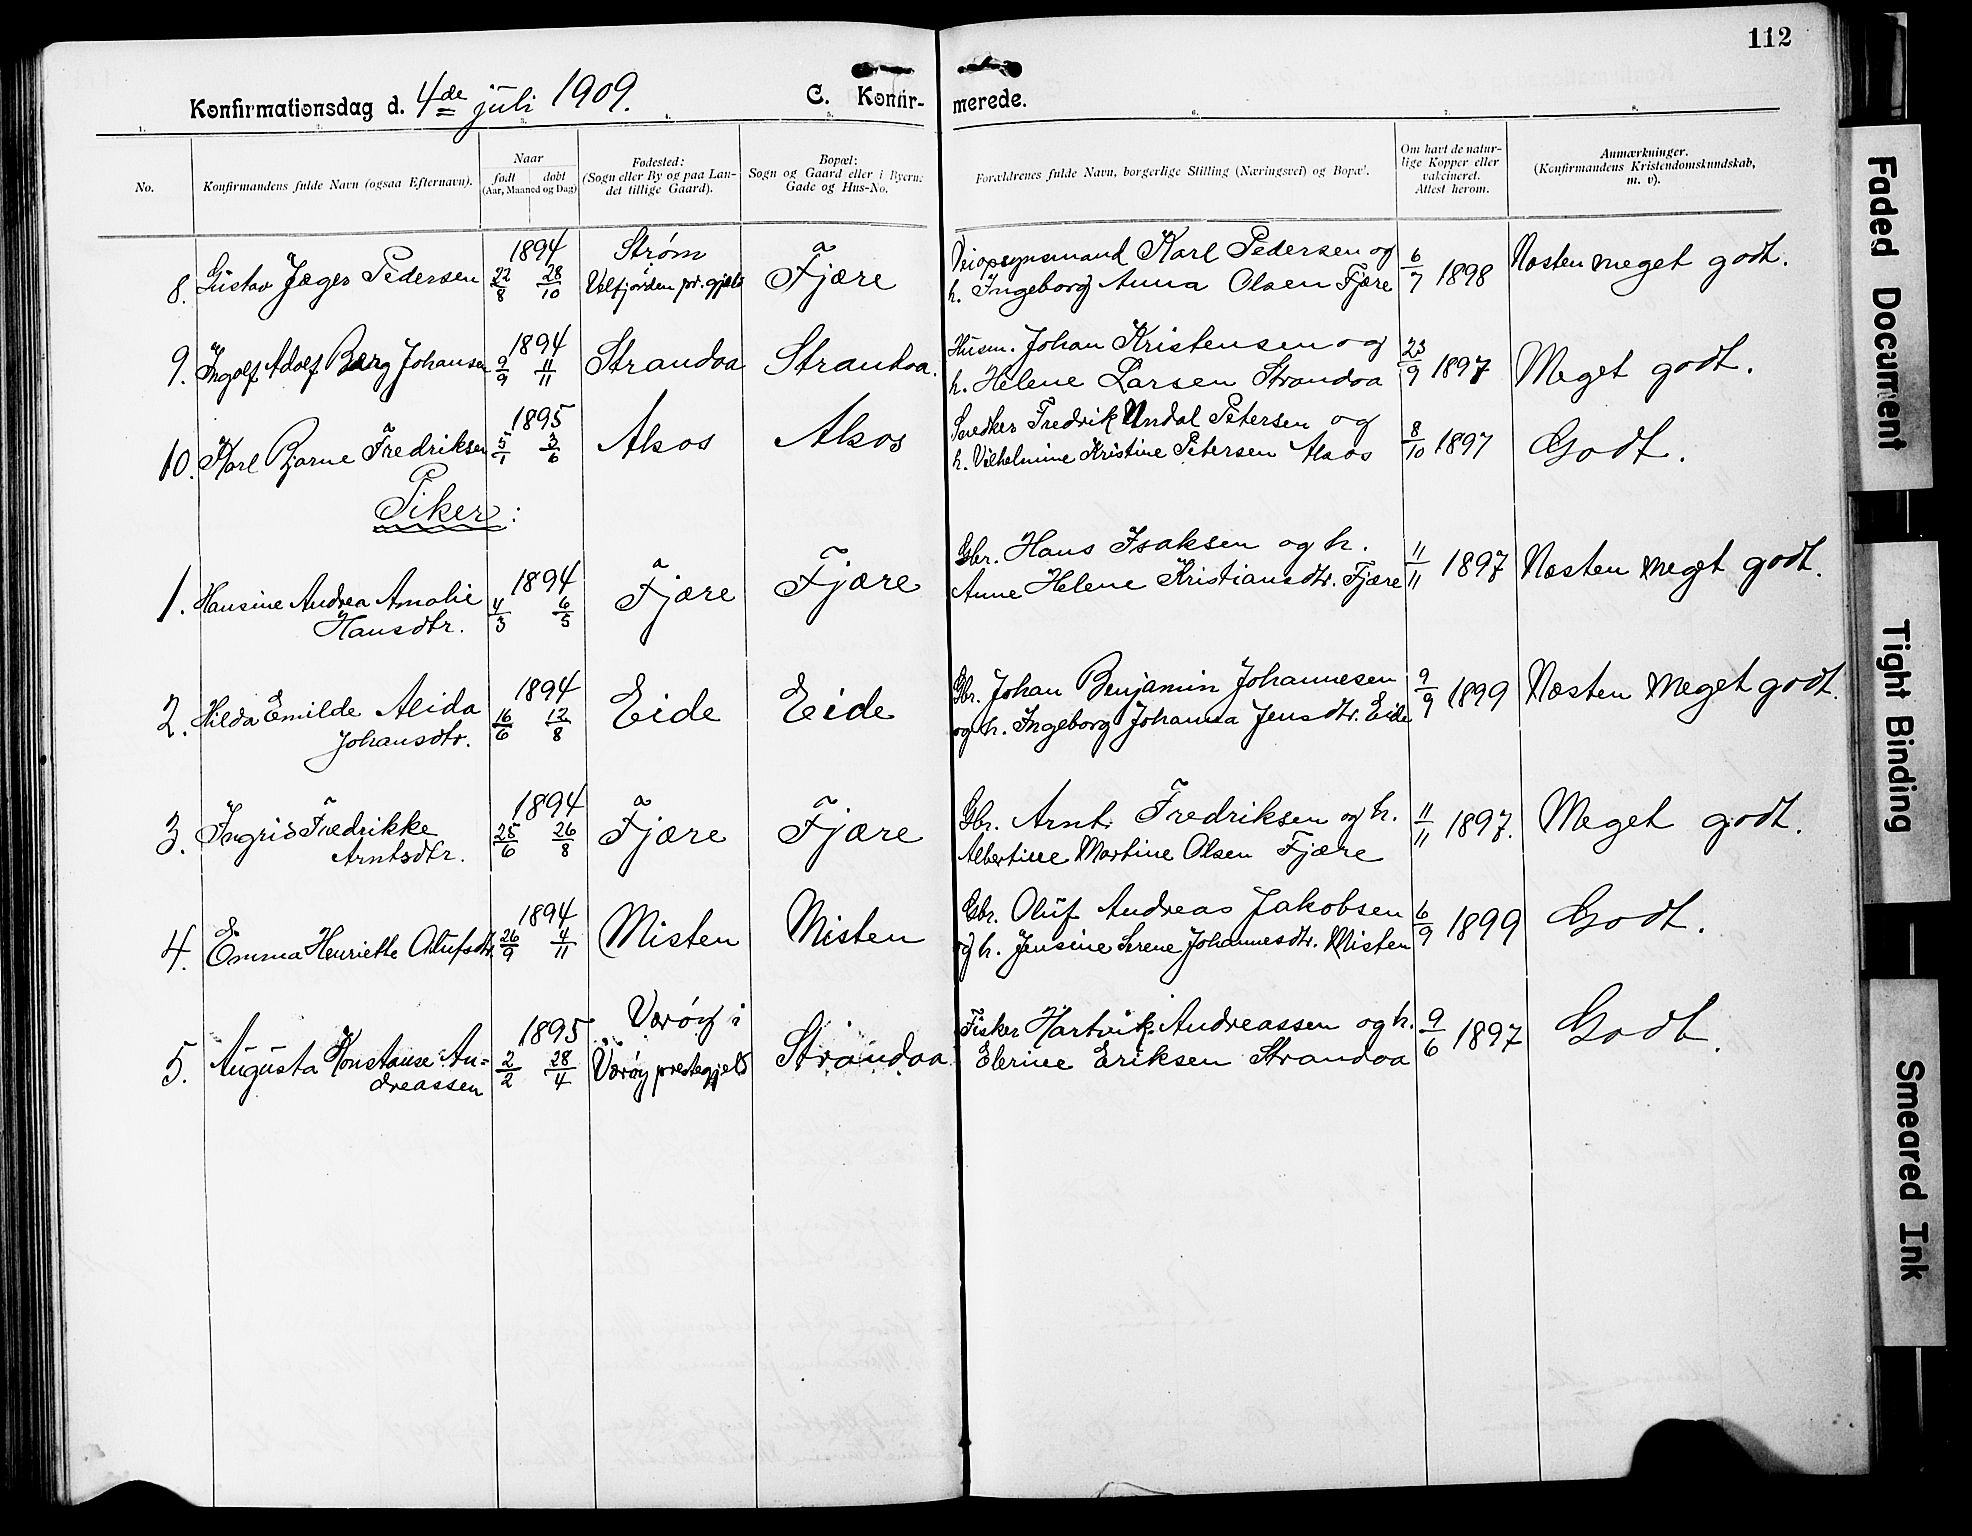 112
Konfirmationsdag d. 4de juli 1909. C. Konfir- merede.
1. 2. 3. 4. 5. 6. 7. 8.
No.
Konfirmandens fulde Navn (ogsaa Efternavn).
Naar
født døbt
(Aar, Maaned og Dag)
Fødested:
(Sogn eller By og paa Lan-
det tillige Gaard).
Bopæl:
Sogn og Gaard eller i Byerne
Gade og Hus-No.
Forældrenes fulde Navn, borgerlige Stilling (Næringsvei) og Bopæl.
Om havt de natur-
lige Kopper eller
vakcineret.
Attest herom.
Anmærkninger.
(Konfirmandens Kristendomskundskab,
m. v).
8. Gustav Jæger Pedersen 1894 22/8 28/10 Strøm
Velfjorden pr.gjeld Fjære Veiopsynsmand Karl Pedersen og
h. Ingeborg Anna Olsen Fjære 6/7 1898 Næsten meget godt.
9. Ingolf Adolf Berg Johansen 1894 9/9 11/11 Strandaa Strandaa. Husm. Johan Kristensen og
h. Helene Larsen Strandaa 23/9 1897 Meget godt.
10. Karl Bjarne Fredriksen 1895 5/1 3/6 Alsos Alsos Snedker Fredrik Undal Petersen og
h. Vilhelmine Kristine Petersen Alsos 8/10 1897 Godt.
Piker:
1. Hansine Andrea Amalie
Hansdtr. 1894 4/3 6/5 Fjære Fjære Gbr. Hans Isaksen og h.
Anne Helene Kristiansdtr. Fjære 11/11 1897 Næsten meget godt.
2. Hilda Emilde Alida
Johansdtr. 1894 16/6 12/8 Eide Eide Gbr. Johan Benjamin Johannesen
og h. Ingeborg Johanna Jensdtr. Eide 9/9 1899 Næsten meget godt.
3. Ingrid Fredrikke
Arntsdtr. 1894 25/6 26/8 Fjære Fjære Gbr. Arnt Fredriksen og h.
Albertine Martine Olsen Fjære 11/11 1897. Meget godt.
4. Emma Henriette Olufsdtr. 1894 26/9 4/11 Misten Misten Gbr. Oluf Andreas Jakobsen
og h. Jensine Serene Johannesdtr. Misten 6/9 1899 Godt.
5. Augusta Konstanse An-
dreassen 1895 2/2 28/4 Værøy i
Værøy prestegjeld Strandaa Fisker Hartvik Andreassen og h.
Elerine Eriksen Strandaa 9/6 1897 Godt.
Faded Document
Tight Binding
Smeared Ink